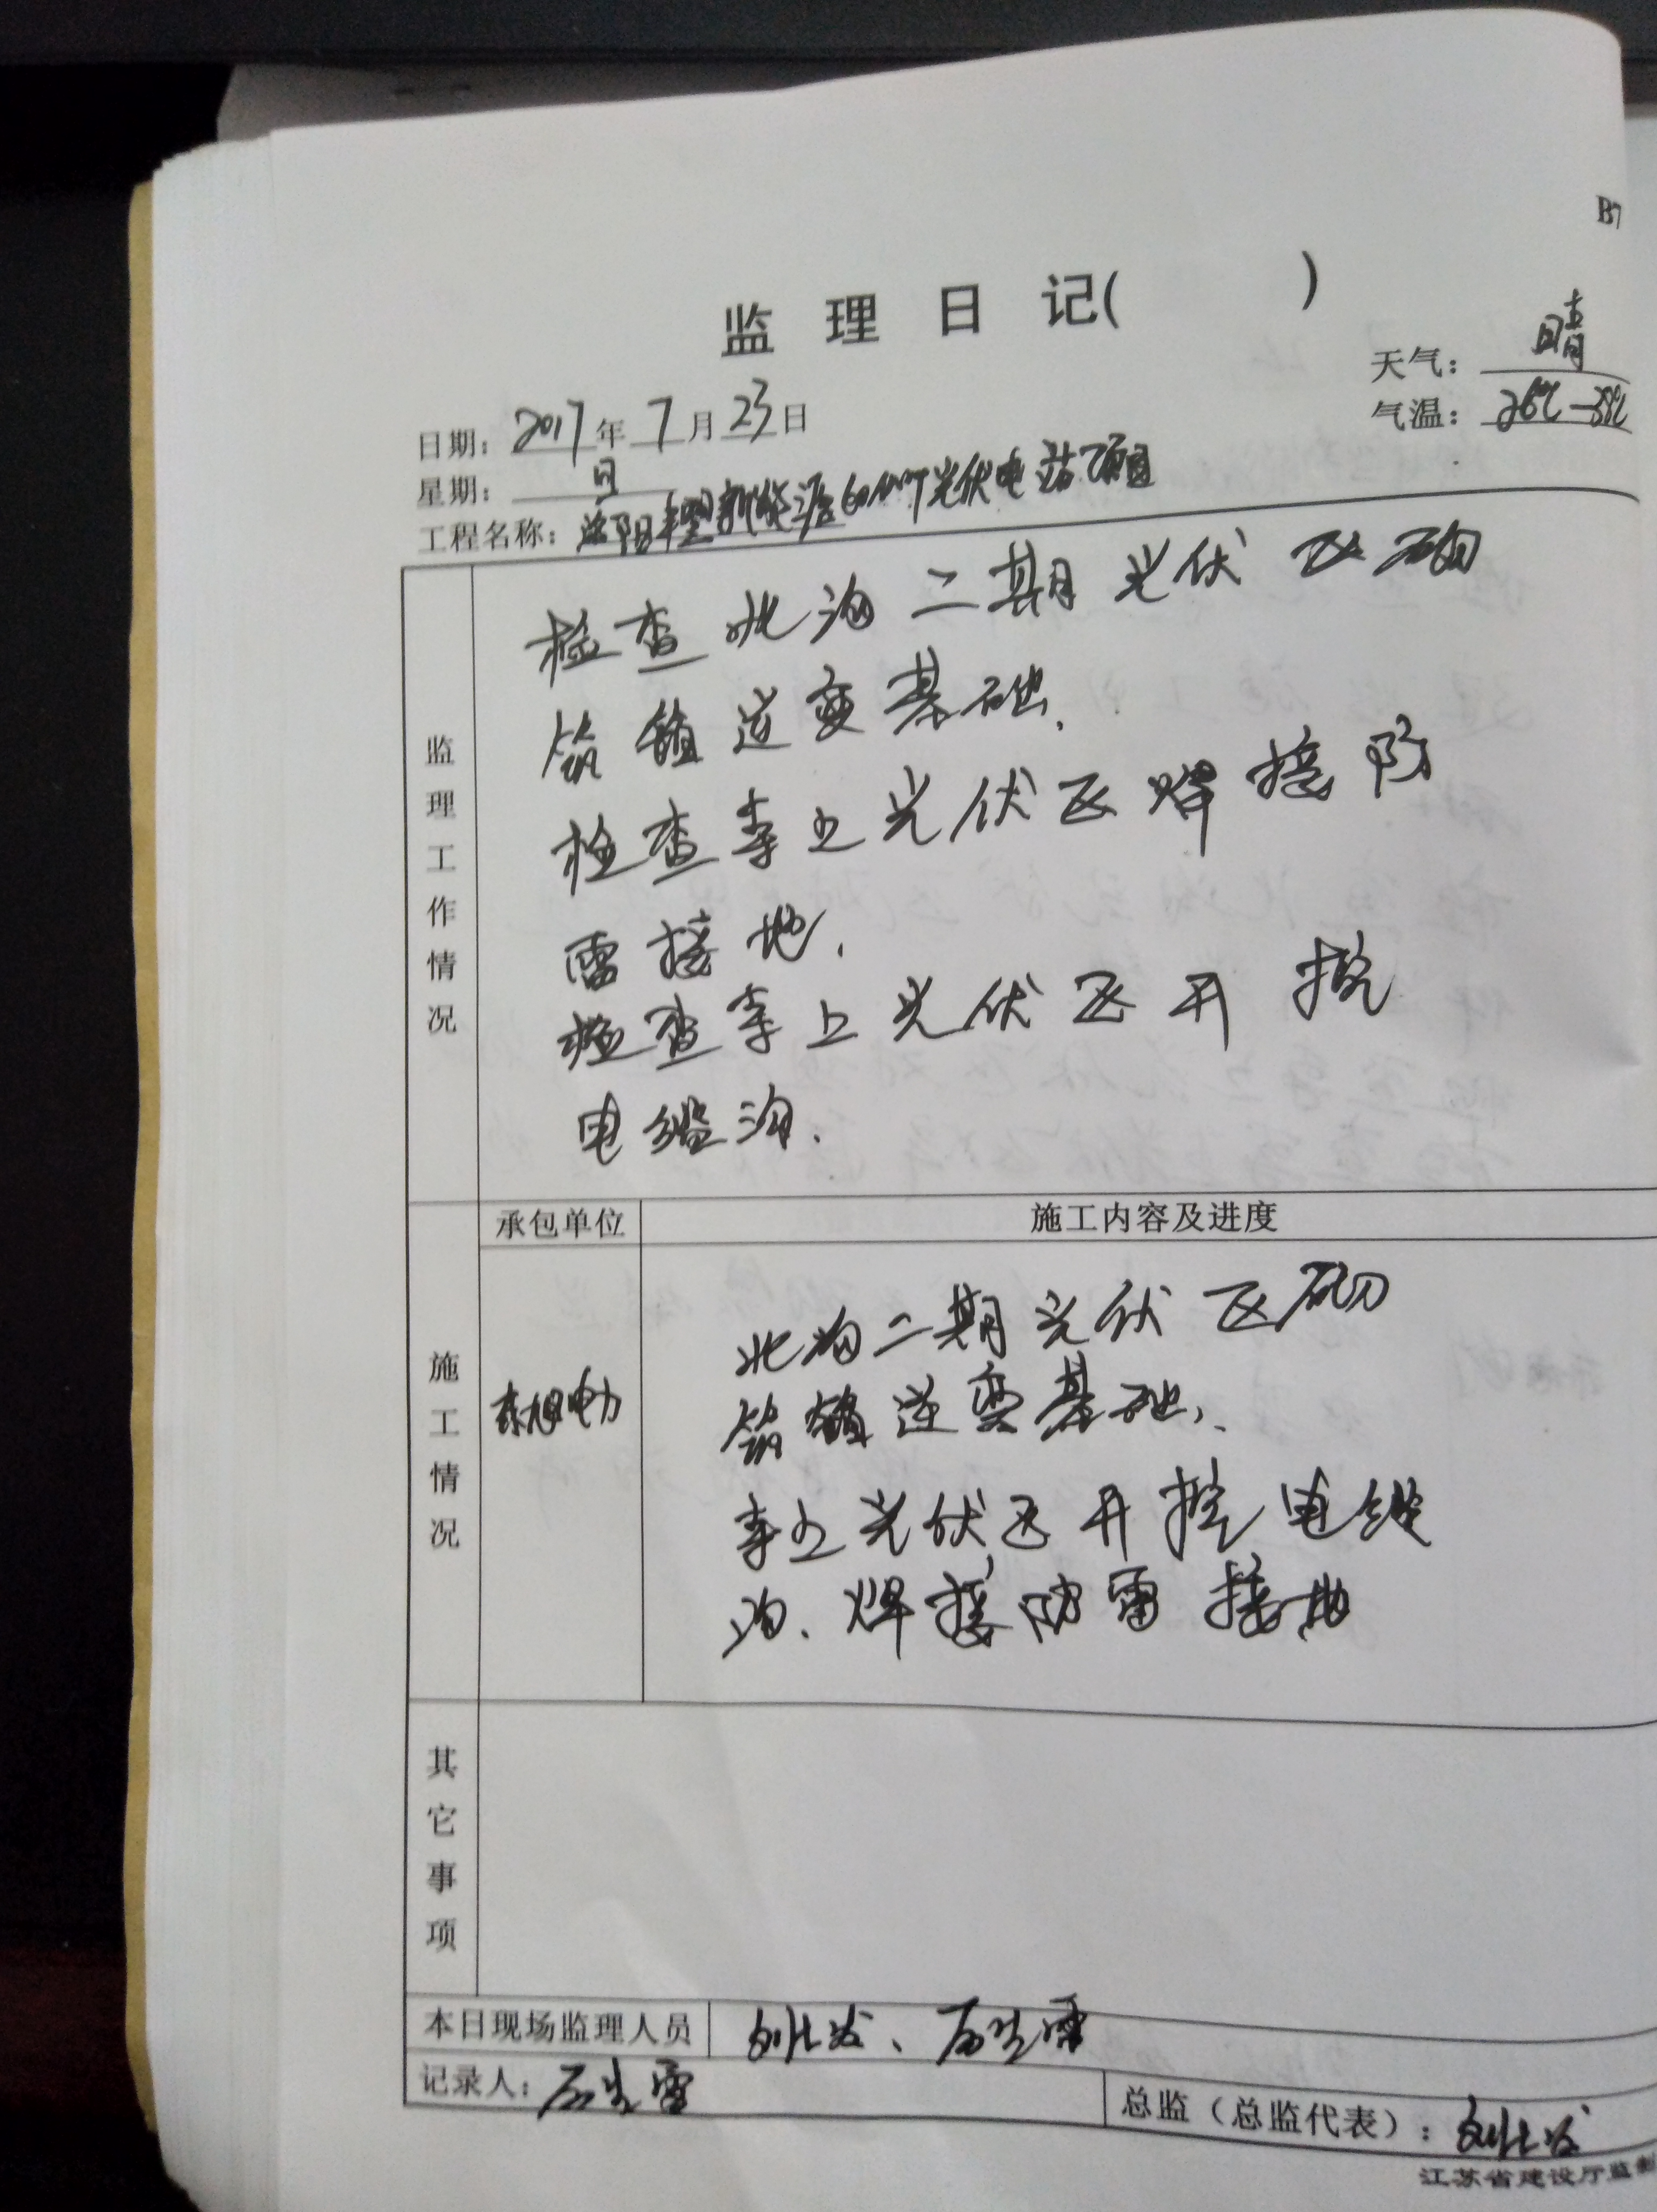 B7
监理日记( )
天气：晴
日期：2017年7月23日
气温：26℃-38℃
星期：日
工程名称：洛阳 新能源60MW光伏电站项目
监理工作情况
检查北沟二期光伏区砌
筑 逆变基础.
检查 上光伏区焊接防
雷接地.
检查 上光伏区开挖
电缆沟.
施工情况
承包单位
施工内容及进度
东旭电力
北沟二期光伏区砌
筑 逆变基础.
上光伏区开挖电缆
沟、焊接防雷接地
其它事项
本日现场监理人员
记录人：
总监（总监代表）：
江苏省建设厅监制